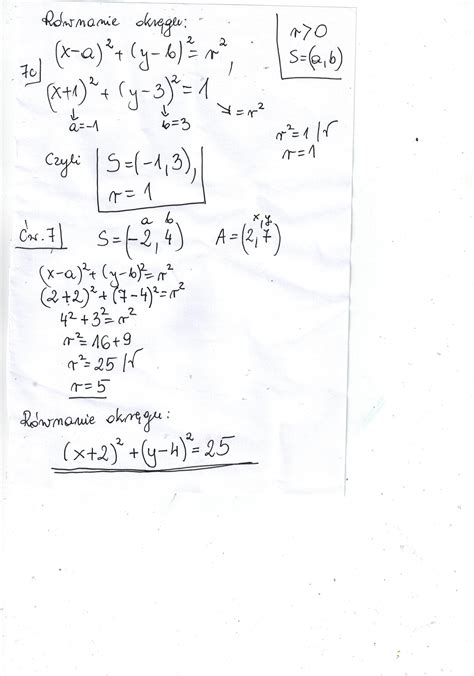 Równanie okręgu:
(x-a)² + (y-b)² = r²,
r>0
S=(a,b)
7c)
(x+1)² + (y-3)² = 1
↓ a=-1 ↓ b=3 ↘ = r²
r²=1 /√
r=1
Czyli S=(-1,3),
r=1
Ćw. 7 S=(-2,4) A=(2,7)
a b x, y
(x-a)²+(y-b)²=r²
(2+2)²+(7-4)²=r²
4²+3²=r²
r²=16+9
r²=25 /√
r=5
Równanie okręgu:
(x+2)²+(y-4)²=25